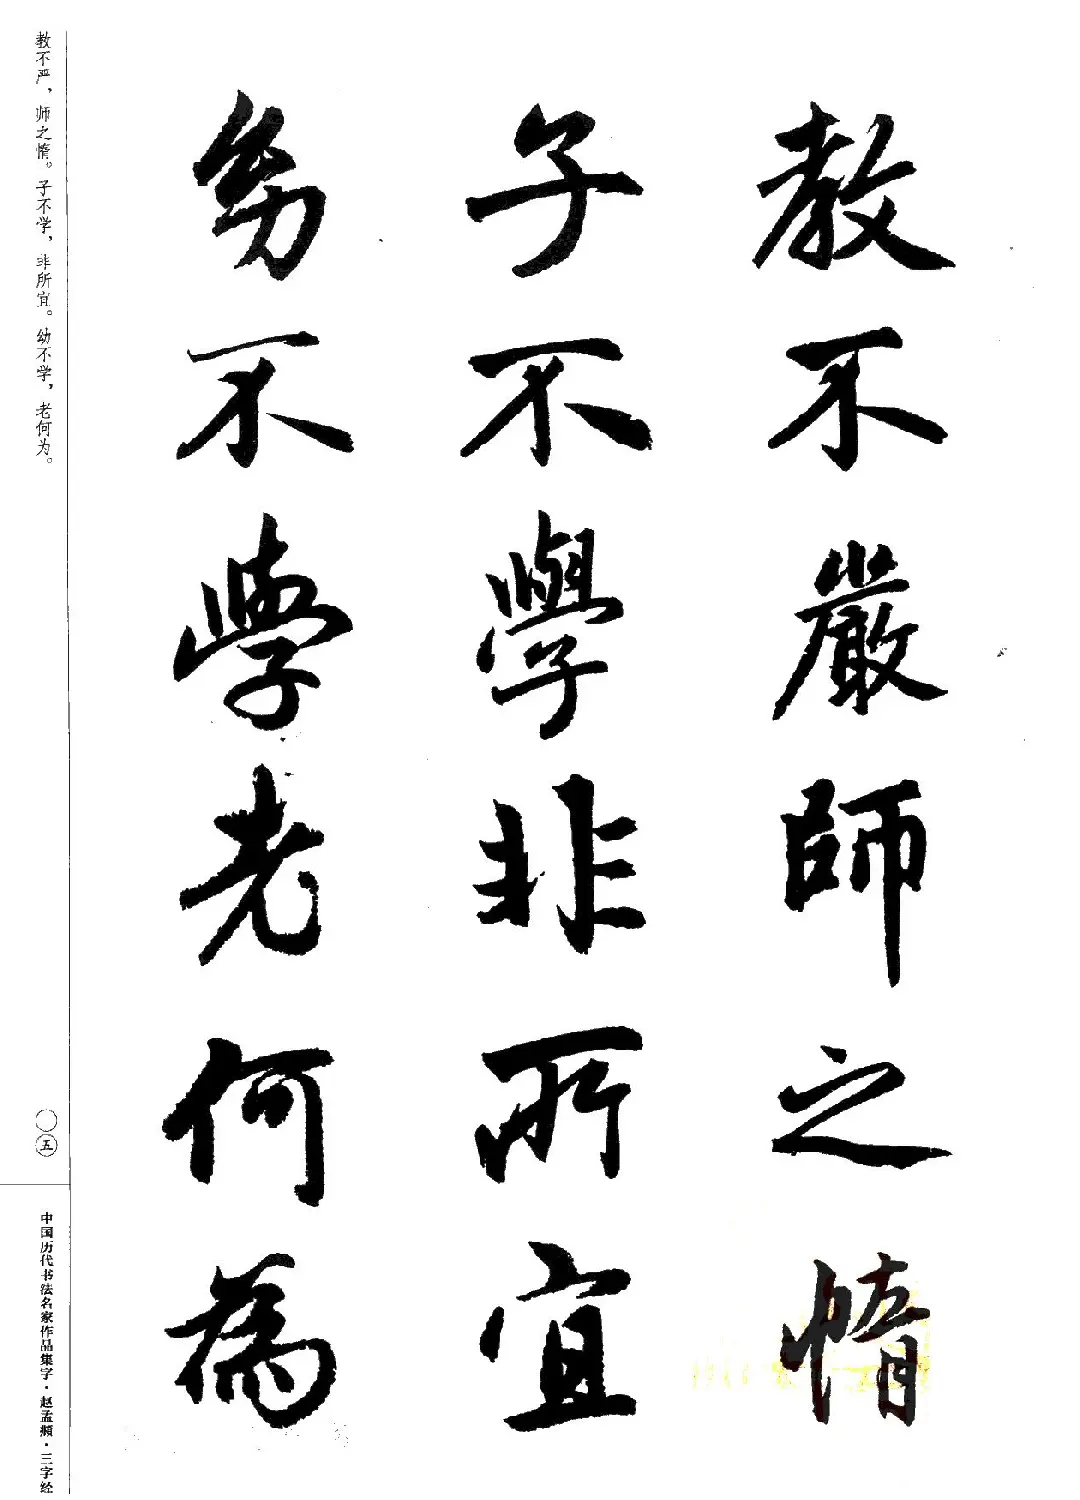 教不嚴師之惰
子不學非所宜
幼不學老何為
教不严，师之惰。子不学，非所宜。幼不学，老何为。
〇五
中国历代书法名家作品集字·赵孟頫·三字经